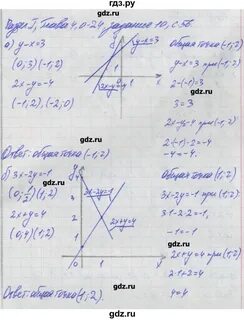 Раздел I, глава 4, 0-21 задание 10, с.56.
а) y-x=3
(0; 3)(-1; 2)
2x-y=-4
(-1; 2), (-2; 0)
y
y-x=3
x
Общая точка (-1; 2)
y-x=3 при (-1; 2)
2-(-1)=3
3=3
2x-y=-4 при (-1; 2)
2·(-1)-2=-4
-4=-4.
Ответ: общая точка (-1; 2)
б) 3x-2y=-1
(1; 2)
2x+y=4
(0; 4)(1; 2)
3x-2y=-1
2x+y=4
0
Общая точка (1; 2)
3x-2y=-1 при (1; 2)
3·1-2·2=-1
-1=-1
2x+y=4 при (1; 2)
2·1+2=4
4=4
Ответ: общая точка (1; 2).
гдз.ру